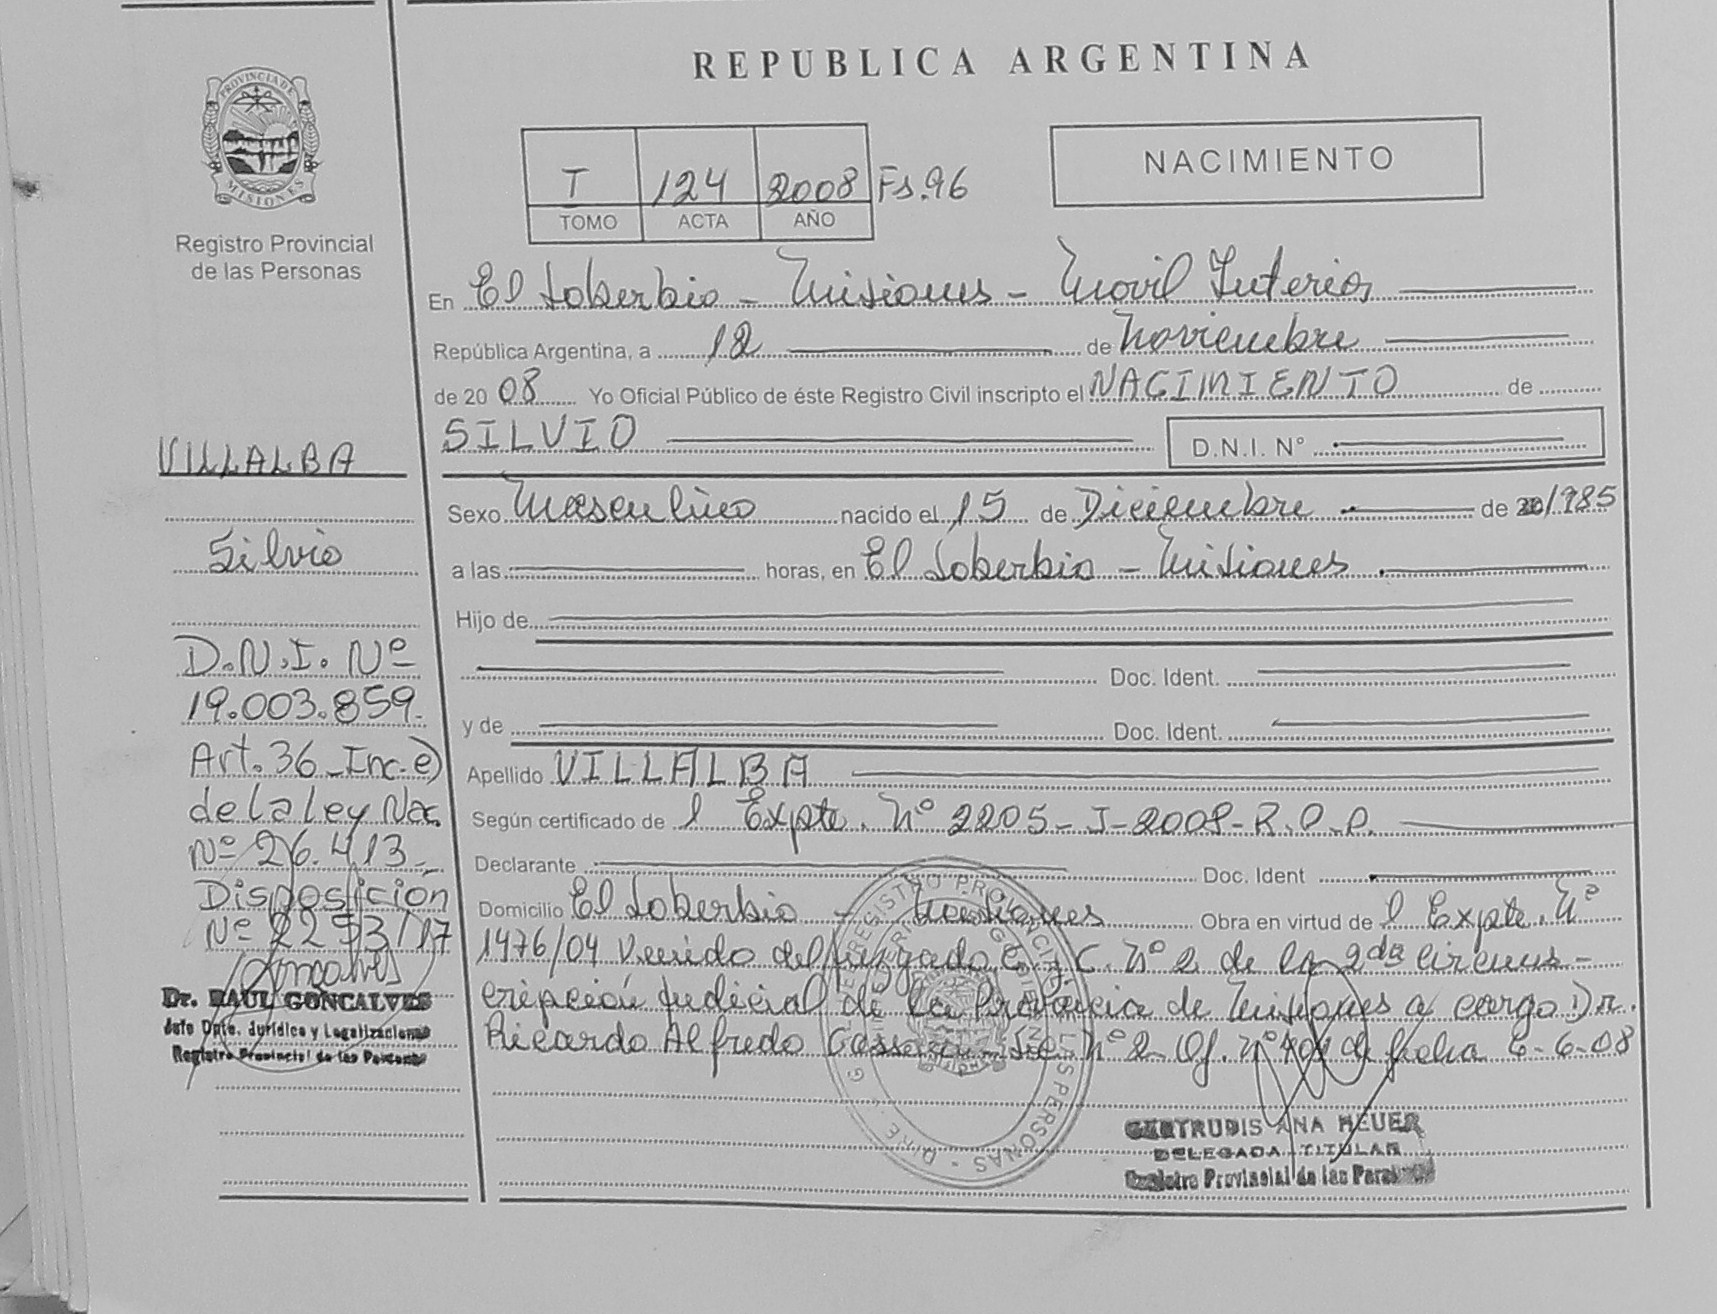 REPUBLICA ARGENTINA
PROVINCIA DE
MISIONES
Registro Provincial
de las Personas
T 124 2008 Fs.96
TOMO ACTA AÑO
NACIMIENTO
En El Soberbio - Misiones - Movil Interior
República Argentina, a 12 de Noviembre
de 20 08 Yo Oficial Público de éste Registro Civil inscripto el NACIMIENTO de
SILVIO D.N.I. N°
Sexo Masculino nacido el 15 de Diciembre de 1985
a las horas, en El Soberbio - Misiones
Hijo de
Doc. Ident.
y de Doc. Ident.
Apellido VILLALBA
Según certificado de l Expte. N° 2205-J-2008-R.P.P.
Declarante Doc. Ident
Domicilio El Soberbio - Misiones Obra en virtud de l Expte. N°
1476/04 Venido del Juzgado C. y C. N° 2 de la 2da Circuns-
cripción Judicial de la Provincia de Misiones a cargo Dr.
Ricardo Alfredo N° 2 Of. N° de fecha 6-6-08
GERTRUDIS ANA HEUER
DELEGADA TITULAR
Registro Provincial de las Personas
VILLALBA
Silvio
D.N.I. Nº
19.003.859.
Art. 36 - Inc. e)
de la Ley Nac.
Nº 26.413.-
Disposición
Nº 2293/17
Dr. RAUL GONCALVES
Jefe Dpto. Jurídica y Legalizaciones
Registro Provincial de las Personas